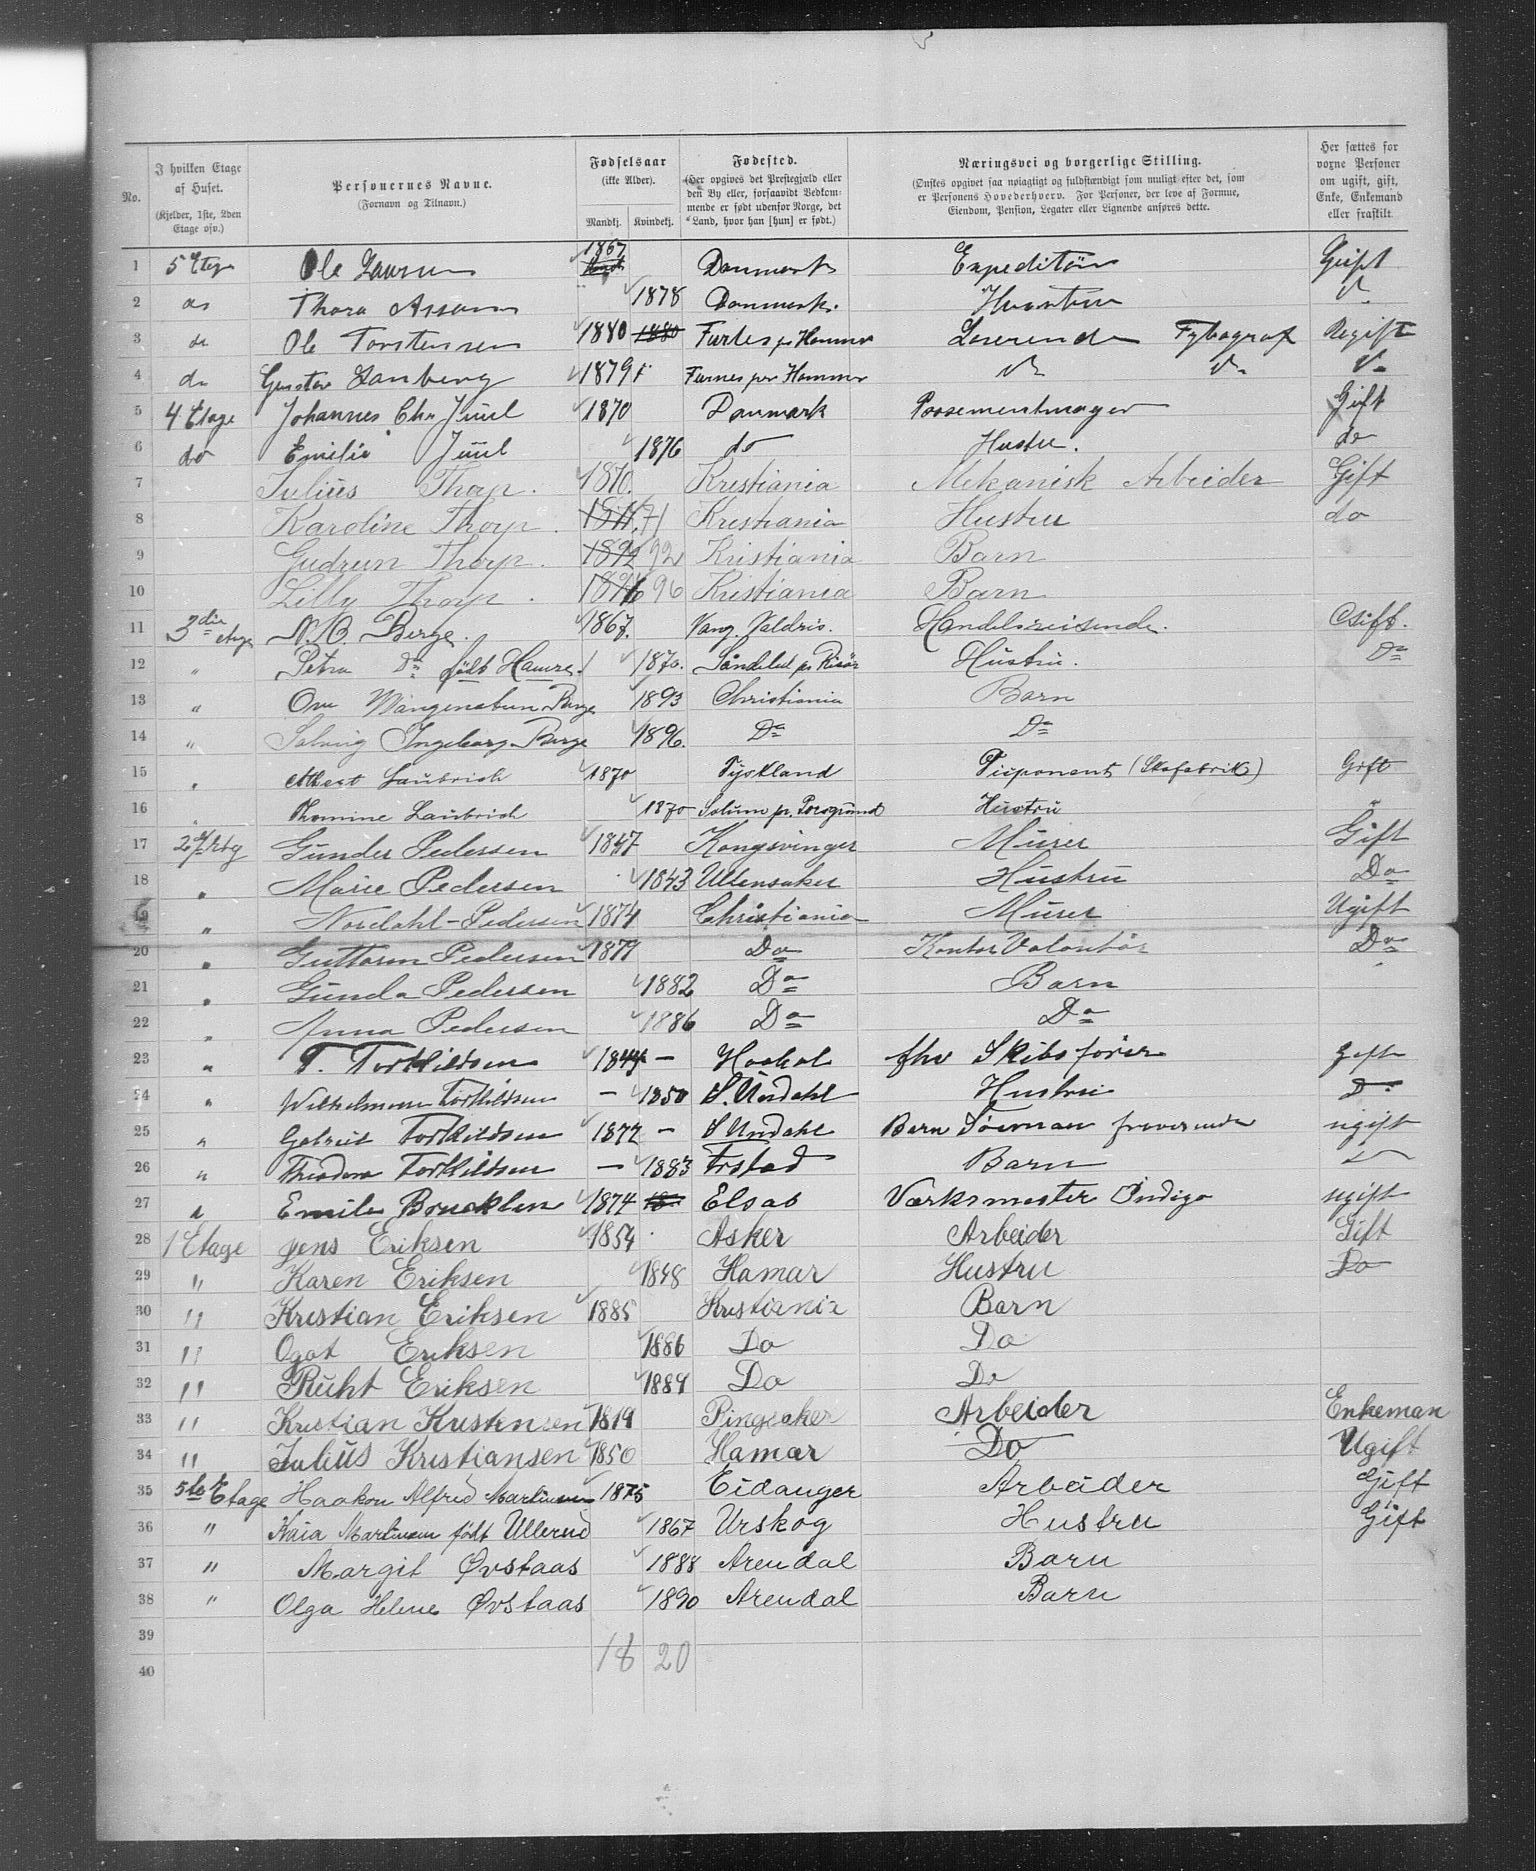 No.
I hvilken Etage af Huset. (Kjelder, 1ste, 2den Etage osv.)
Personernes Navne. (Fornavn og Tilnavn.)
Fødselsaar (ikke Alder). Mandkj. Kvindekj.
Fødested. (Her opgives det Prestegjæld eller den By eller, forsaavidt Vedkommende er født udenfor Norge, det Land, hvor han [hun] er født.)
Næringsvei og borgerlige Stilling. (Ønskes opgivet saa nøiagtigt og fuldstændigt som muligt efter det, som er Personens Hovederhverv. For Personer, der leve af Formue, Eiendom, Pension, Legater eller Lignende anføres dette.
Her sættes for voxne Personer om ugift, gift, Enke, Enkemand eller fraskilt.
1 5 Etage Ole 1867 Danmark Expeditør Gift
2 do Thora 1878 Danmark. Hustru
3 do Ole Torstensen 1880 1880 pr Hammer Typograf
4 do Gustav 1879 Furnes per Hammer
5 4 Etage Johannes Chr Juul 1870 Danmark Possementmager Gift
6 do Emilie Juul 1876 do Hustru. do
7 Julius Thorp. 1870. Kristiania Mekanisk Arbeider Gift
8 Karoline Thorp. 71 Kristiania Hustru do
9 Gudrun Thorp. 1892 92 Kristiania Barn
10 Lilly Thorp. 1896 96 Kristiania Barn
11 3die Etage N. O. Berge. 1867. Vang. Valdris. Handelsreisende. Gift.
12 " Petra Do født 1870. Søndeled pr Risør Hustru. Do
13 " Berge 1893 Christiania Barn
14 " Solveig Ingeborg Berge 1896. Do Do
15 " Albert Laubrich 1870 Tyskland Disponent (Skofabrik) Gift
16 " Thomine Laubrich 1870 Solum pr. Porsgrund Hustru "
17 2 Etg Gunder Pedersen 1847 Kongsvinger Murer Gift
18 " Marie Pedersen 1843 Ullensaker Hustru Do
19 " Nordahl-Pedersen 1874 Christiania Murer Ugift
20 " Guttorm Pedersen 1879 Do Kontor Volontør Do
21 " Gunda Pedersen 1882 Do Barn
22 " Anna Pedersen 1886 Do Do
23 " T. Torkildsen 1844 — fhv Skibsfører Gift
24 " Torkildsen — 1850 S. Undahl Hustru D
25 " Gabriel Torkildsen 1877 — S Undahl Barn Søman fraværende ugift
26 " Theodora Torkildsen — 1883 Barn
27 " Emile 1874 Elsas Værksmester Indigo ugift
28 1 Etage Jens Eriksen 1854 Asker Arbeider Gift
29 " Karen Eriksen 1848 Hamar Hustru Do
30 " Kristian Eriksen 1885 Kristiania Barn
31 " Eriksen 1886 Do Do
32 " Ruht Eriksen 1889 Do Do
33 " Kristian Kristensen 1819 Ringsaker Arbeider Enkeman
34 " Julius Kristiansen 1850 Hamar Do Ugift
35 5te Etage Haakon Alfred Martinsen 1875 Eidanger Arbeider Gift
36 " Kaia Martinsen født Ullerud 1867 Urskog Hustru Gift
37 " Margit Øvstaas 1888 Arendal Barn
38 " Olga Helene Øvstaas 1890 Arendal Barn
39
18 20
40